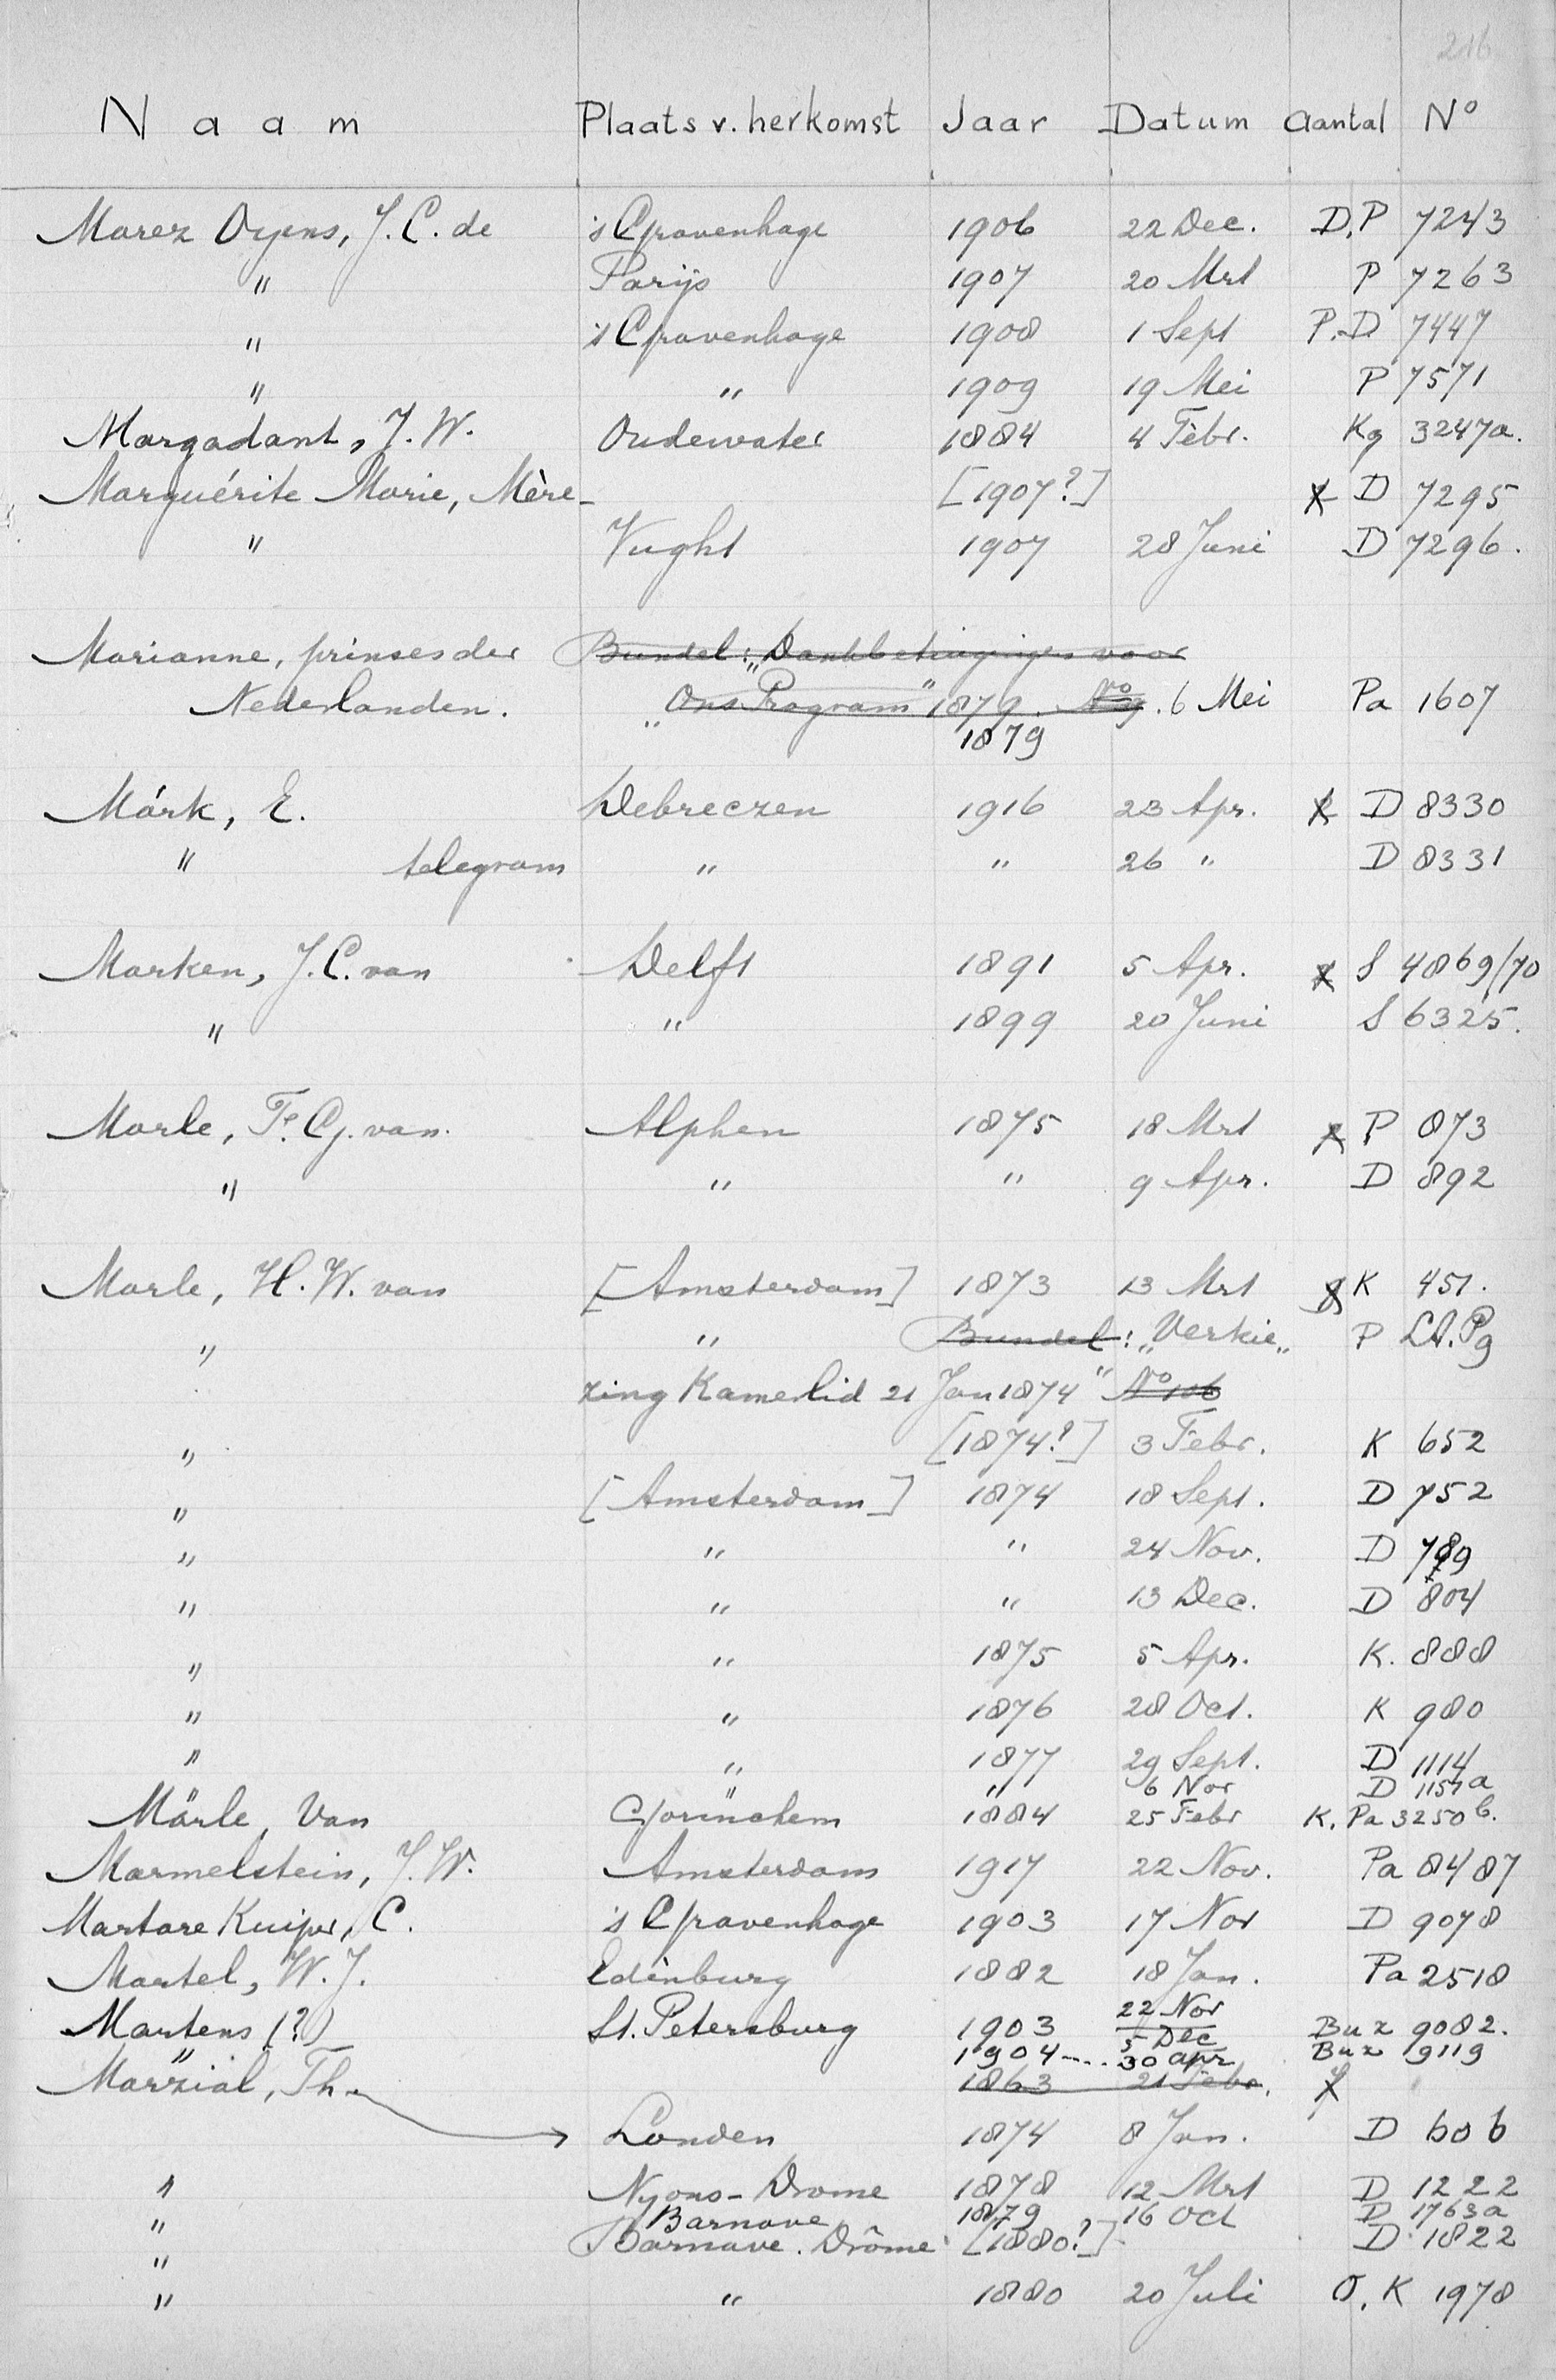 216
Naam Plaats v. herkomst Jaar Datum Aantal No
Marez Oyens, J.C. de 's Gravenhage 1906 22 Dec. D.P 7243
" Parijs 1907 20 Mrt P 7263
" 's Gravenhage 1908 1 Sept P.D 7447
" " 1909 19 Mei P 7571
Margadant, J.W. Oudewater 1884 4 Febr. Kg 3247a.
Marguérite Marie, Mère- [1907?] D 7295
" Vught 1907 28 Juni D 7296.
Marianne, prinses der Bundel: „Dankbetuigingen voor
Nederlanden. „Ons Program" 1879. No 9. 6 Mei Pa 1607
1879
Márk, E. Debreczen 1916 23 Apr. D 8330
" telegram " " 26 " D 8331
Marken, J.C. van Delft 1891 5 Apr. S 4869/70
" " 1899 20 Juni S 6325.
Marle, F.G. van Alphen 1875 18 Mrt P 873
" " " 9 Apr. D 892
Marle, H.W. van [Amsterdam] 1873 13 Mrt K 451.
" " Bundel: „Verkie„ P Lt. Pg
zing Kamerlid 21 Jan 1874" No 106
" [1874?] 3 Febr. K 652
" [Amsterdam] 1874 18 Sept. D 752
" " " 24 Nov. D 789
" " " 13 Dec. D 804
" " 1875 5 Apr. K. 888
" " 1876 28 Oct. K 980
" " 1877 29 Sept. D 1114
" " " 6 Nov D 1157a
Marle, Van Gorinchem 1884 25 Febr K. Pa 3250b.
Marmelstein, J.W. Amsterdam 1917 22 Nov. Pa 8487
Martare Kuiper, C. 's Gravenhage 1903 17 Nov D 9078
Martel, W.J. Edinburg 1882 18 Jan. Pa 2518
Martens (?) St. Petersburg 1903 22 Nov 5 Dec Bux 9082.
" 1904---- 30 apr Bux 9119
Marzial, Th. 1863 21 Febr.
Londen 1874 8 Jan. D 606
" Nyons-Drome 1878 12 Mrt D 1222
" Barnave 1879 16 Oct D 1763a
" Barnave. Drôme [1880?] D 1822
" " 1880 20 Juli O.K 1978